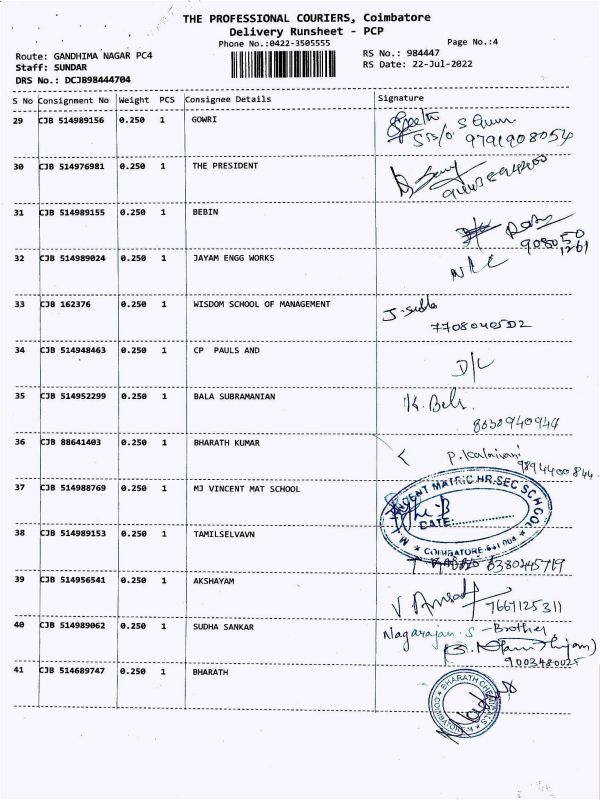 THE PROFESSIONAL COURIERS, Coimbatore
Delivery Runsheet - PCP
Phone No.:0422-3505555
Page No.:4
Route: GANDHIMA NAGAR PC4
RS No.: 984447
Staff: SUNDAR
RS Date: 22-Jul-2022
DRS No.: DCJB98444704
S No Consignment No Weight PCS Consignee Details Signature
29 CJB 514989156 0.250 1 GOWRI
9791908054
30 CJB 514976981 0.250 1 THE PRESIDENT
31 CJB 514989155 0.250 1 BEBIN
32 CJB 514989024 0.250 1 JAYAM ENGG WORKS
33 CJB 162376 0.250 1 WISDOM SCHOOL OF MANAGEMENT
34 CJB 514948463 0.250 1 CP PAULS AND D/L
35 CJB 514952299 0.250 1 BALA SUBRAMANIAN
36 CJB 88641403 0.250 1 BHARATH KUMAR
9894400844
37 CJB 514988769 0.250 1 MJ VINCENT MAT SCHOOL
VINCENT MATRIC.HR.SEC SCHOOL
DATE:
COIMBATORE
38 CJB 514989153 0.250 1 TAMILSELVAVN
39 CJB 514956541 0.250 1 AKSHAYAM
7667125311
40 CJB 514989062 0.250 1 SUDHA SANKAR Nagarajan. S - Brother
41 CJB 514689747 0.250 1 BHARATH
BHARATH CHEMICALS